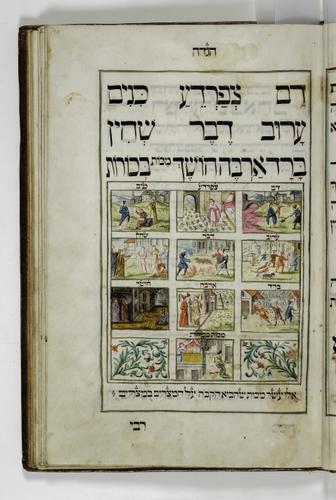 הגדה
דָם צְפַרְדֵעַ כִּנִים
עָרוֹב דֶבֶר שְׁחִין
בָּרָד אַרְבֶּה חוֹשֶׁךְ מכות בְּכוֹרוֹת
דם צפרדע כנים
ערוב דבר שחין
ברד ארבה חושך
מכות בכורות
אלו עשר מכות שהביא הקבה על המצרים במצרים
רבי